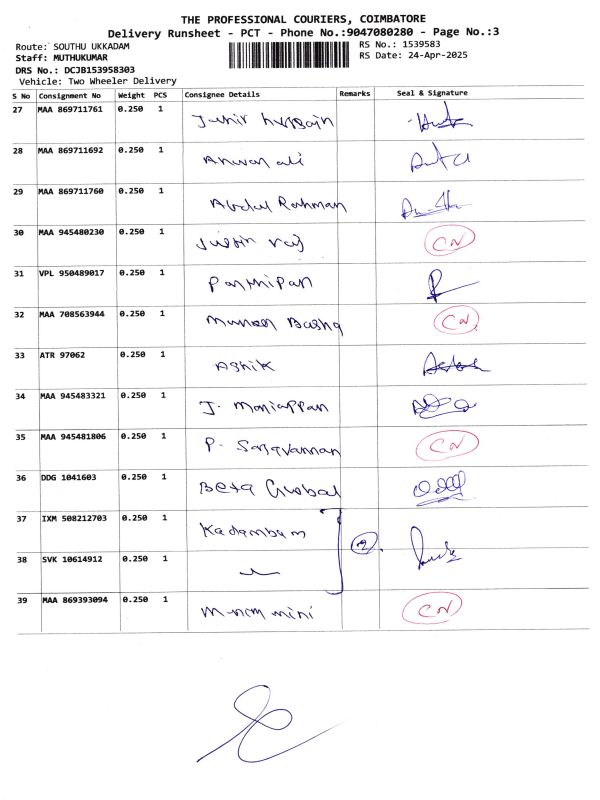 THE PROFESSIONAL COURIERS, COIMBATORE
Delivery Runsheet - PCT - Phone No.:9047080280 - Page No.:3
Route: SOUTHU UKKADAM RS No.: 1539583
Staff: MUTHUKUMAR RS Date: 24-Apr-2025
DRS No.: DCJB153958303
Vehicle: Two Wheeler Delivery
S No Consignment No Weight PCS Consignee Details Remarks Seal & Signature
27 MAA 869711761 0.250 1 Jahir hussain
28 MAA 869711692 0.250 1 Anwar ali
29 MAA 869711760 0.250 1 Abdul Rahman
30 MAA 945480230 0.250 1 Justin raj CN
31 VPL 950489017 0.250 1 Parthipan
32 MAA 708563944 0.250 1 Basha CN
33 ATR 97062 0.250 1 Ashik
34 MAA 945483321 0.250 1 J. Maniappan
35 MAA 945481806 0.250 1 P. Saravannan CN
36 DDG 1041603 0.250 1 Beta Global
37 IXM 508212703 0.250 1 Kadambam 2
38 SVK 10614912 0.250 1
39 MAA 869393094 0.250 1 mini CN